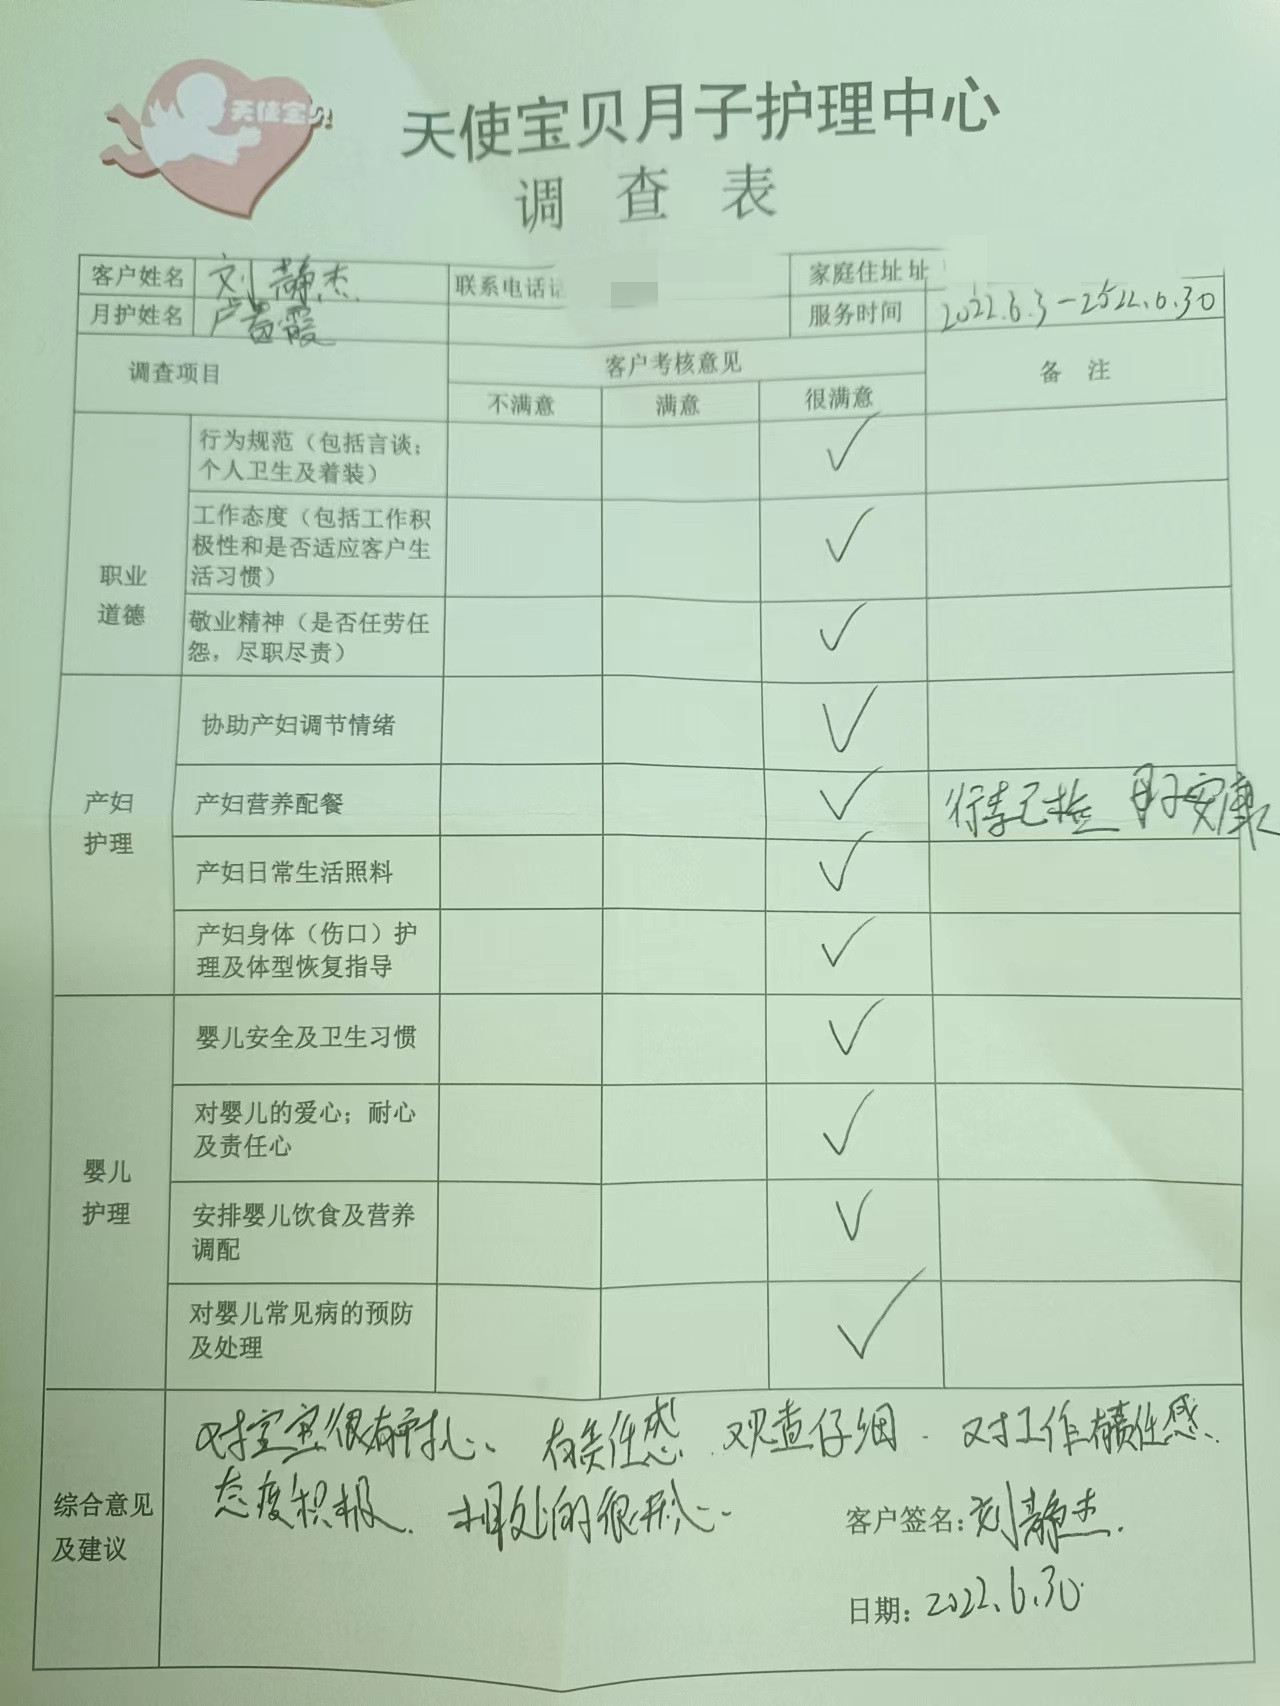 天使宝贝
天使宝贝月子护理中心
调查表
客户姓名 刘静杰 联系电话 家庭住址 址
月护姓名 卢 霞 服务时间 2022.6.3-2522.6.30
调查项目 客户考核意见 备注
不满意 满意 很满意
职业
道德
行为规范（包括言谈；
个人卫生及着装） ✓
工作态度（包括工作积
极性和是否适应客户生
活习惯） ✓
敬业精神（是否任劳任
怨，尽职尽责） ✓
产妇
护理
协助产妇调节情绪 ✓
产妇营养配餐 ✓ 行李已检 月子安康
产妇日常生活照料 ✓
产妇身体（伤口）护
理及体型恢复指导 ✓
婴儿
护理
婴儿安全及卫生习惯 ✓
对婴儿的爱心；耐心
及责任心 ✓
安排婴儿饮食及营养
调配 ✓
对婴儿常见病的预防
及处理 ✓
综合意见
及建议
对宝宝很有耐心、有责任感、观查仔细、对工作有责任感、
态度积极、相处的很开心、
客户签名：刘静杰.
日期：2022.6.30